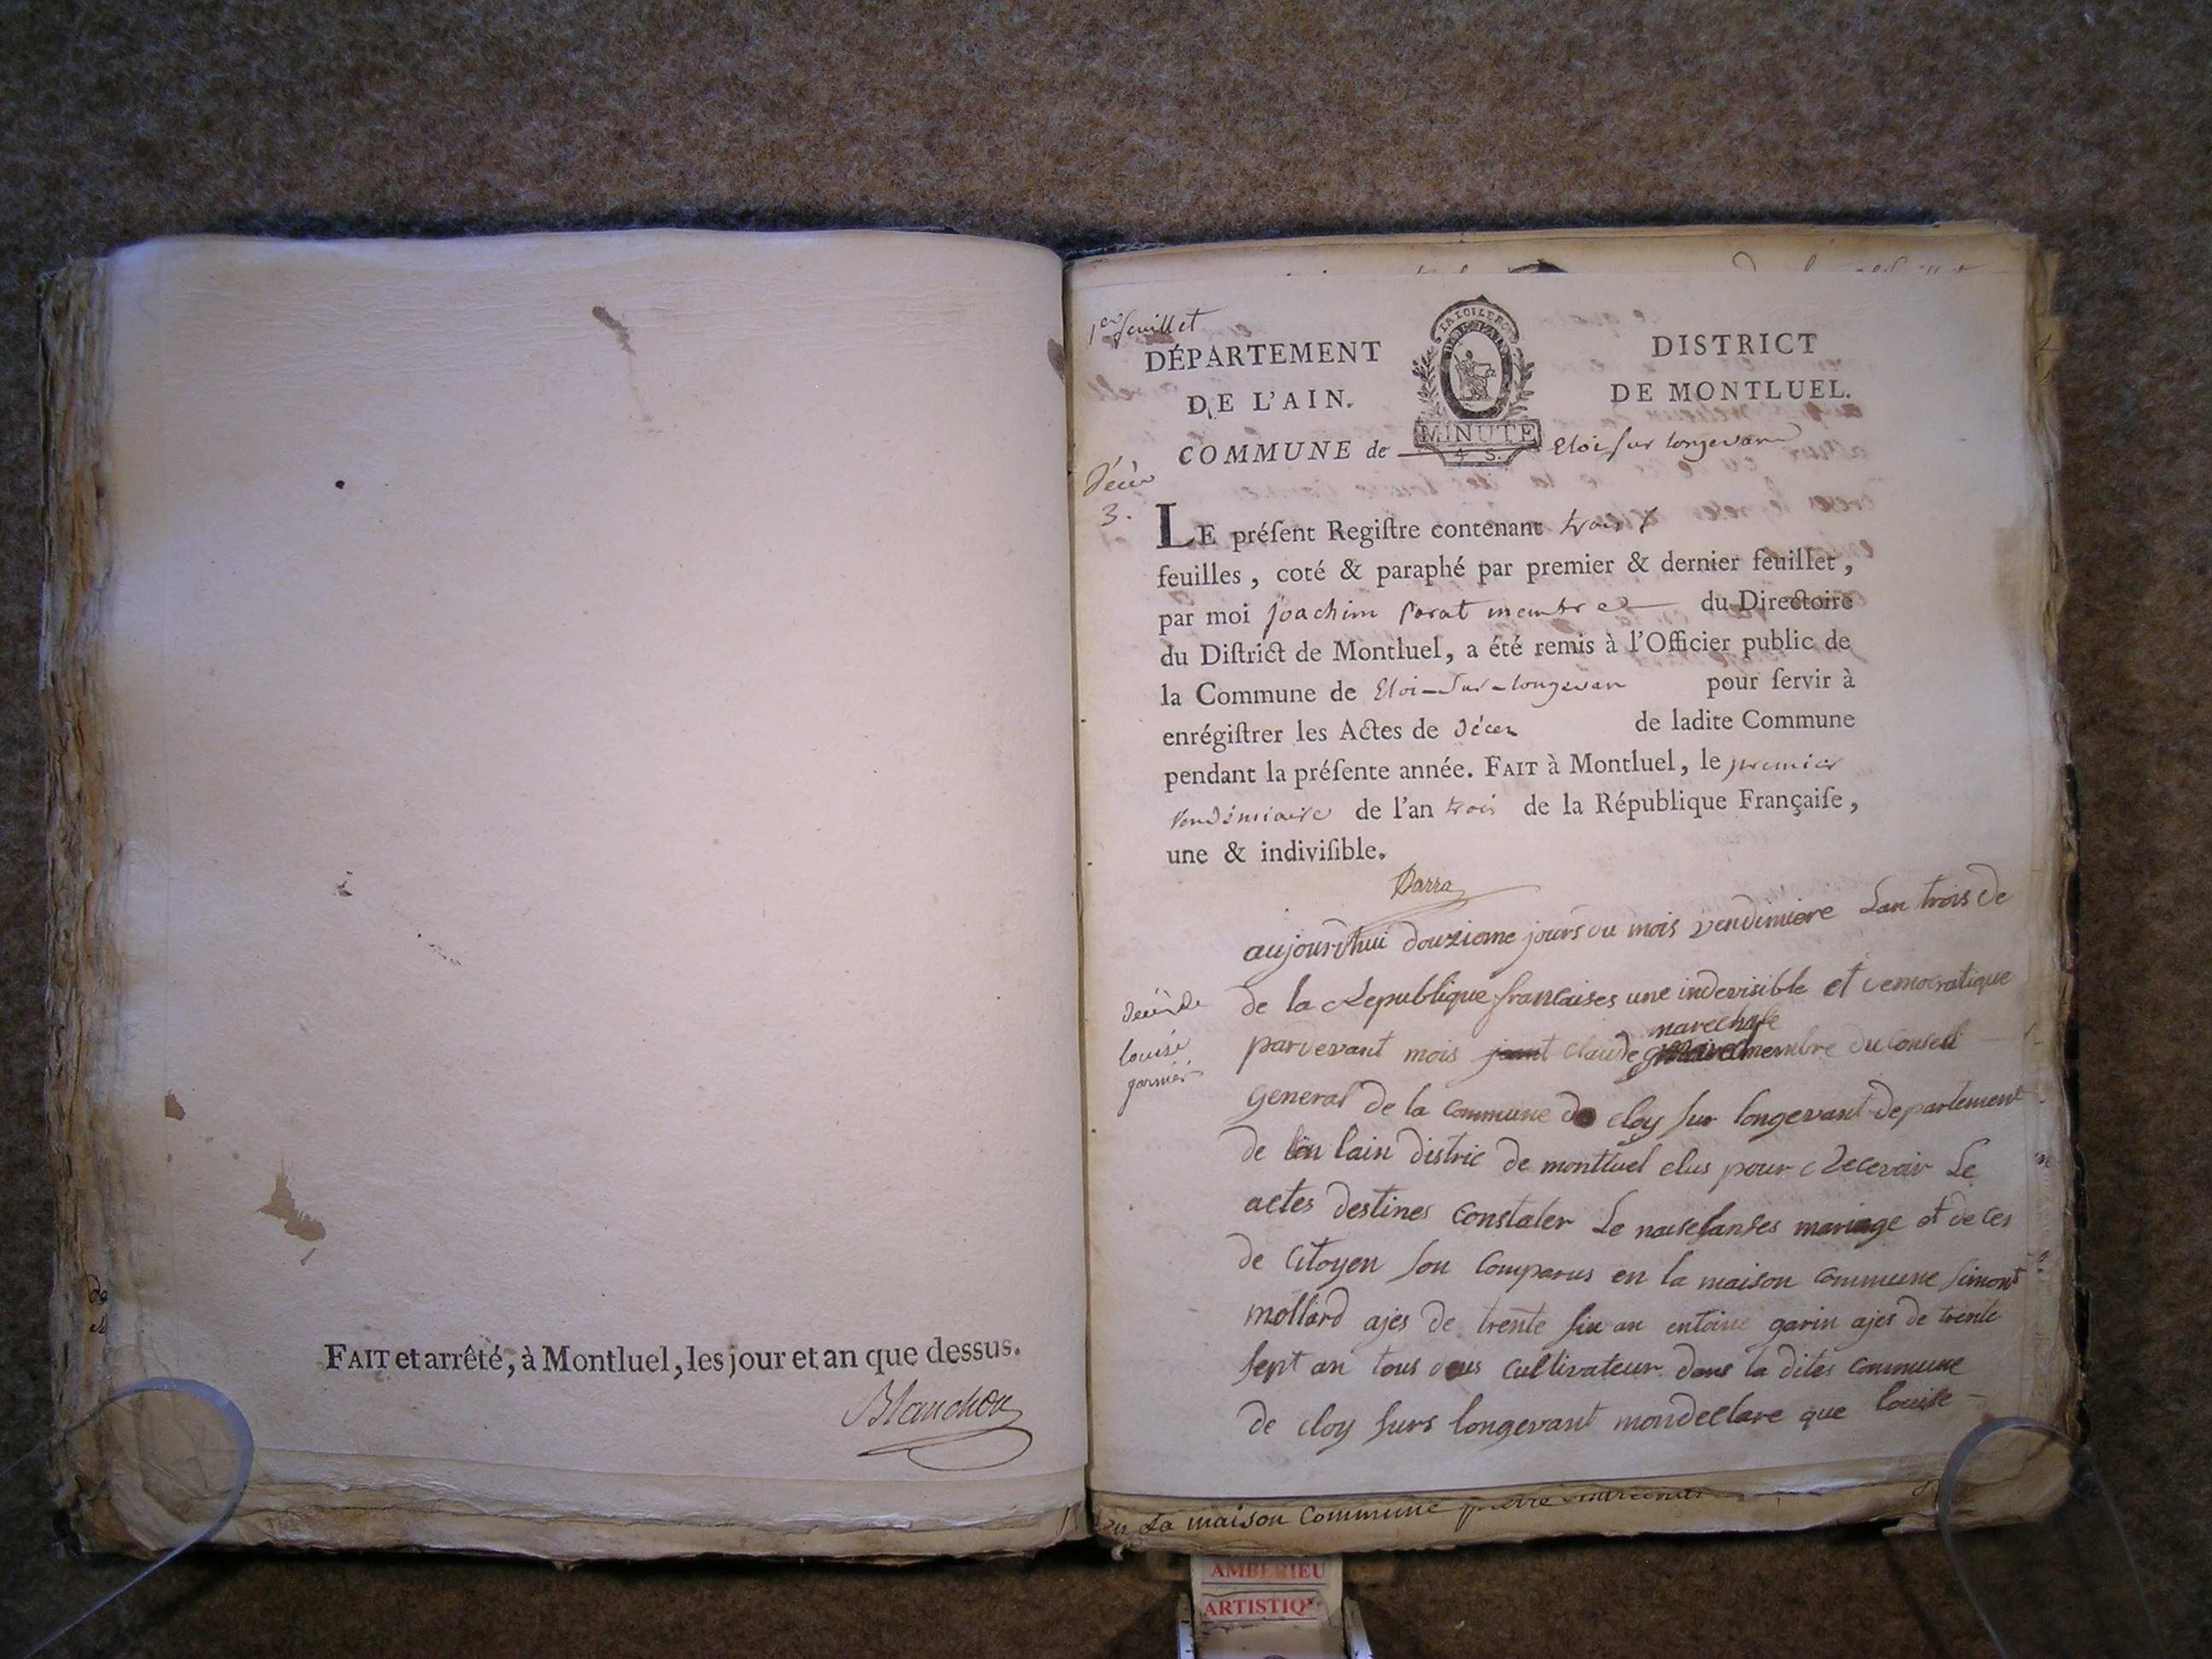 FAIT et arrêté, à Montluel, les jour et an que dessus.
Blanchon
1er feuillet
DÉPARTEMENT
DE L'AIN.
LA LOI LE ROI
MINUTE
4 S.
DISTRICT
DE MONTLUEL.
COMMUNE de Eloi sur longevan
Décès
3.
LE préſent Regiſtre contenant trois
feuilles, coté & paraphé par premier & dernier feuillet,
par moi joachim parat membre du Directoire
du Diſtrict de Montluel, a été remis à l'Officier public de
la Commune de Eloi-sur-longevan pour ſervir à
enrégiſtrer les Actes de décès de ladite Commune
pendant la préſente année. FAIT à Montluel, le premier
vendémiaire de l'an trois de la République Françaiſe,
une & indiviſible.
Parra
aujourdhui douzieme jours du mois vendimiere Lan trois de
de la Republique francaises une indevisible et democratique
marechale
pardevant mois claude membre du conseil
general de la commune de eloy sur longevant departement
de lain distric de montluel elus pour Recevoir Le
actes destines constater Le naisesanses mariage et de ces
de citoyen son comparus en la maison commune simont
mollard ajes de trente six an entoine garin ajes de trente
sept an tous deus cultivateur dans la dites commune
de eloy surs longevant mondeclare que louise
décès de
louise
garnier
en La maison Commune pierre
AMBERIEU
ARTISTIQ